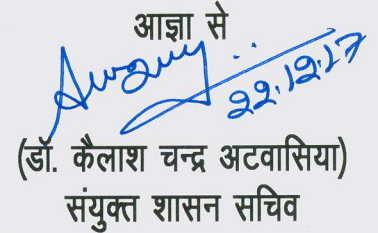 आज्ञा से
22.12.17
(डॉ. कैलाश चन्द्र अटवासिया)
संयुक्त शासन सचिव